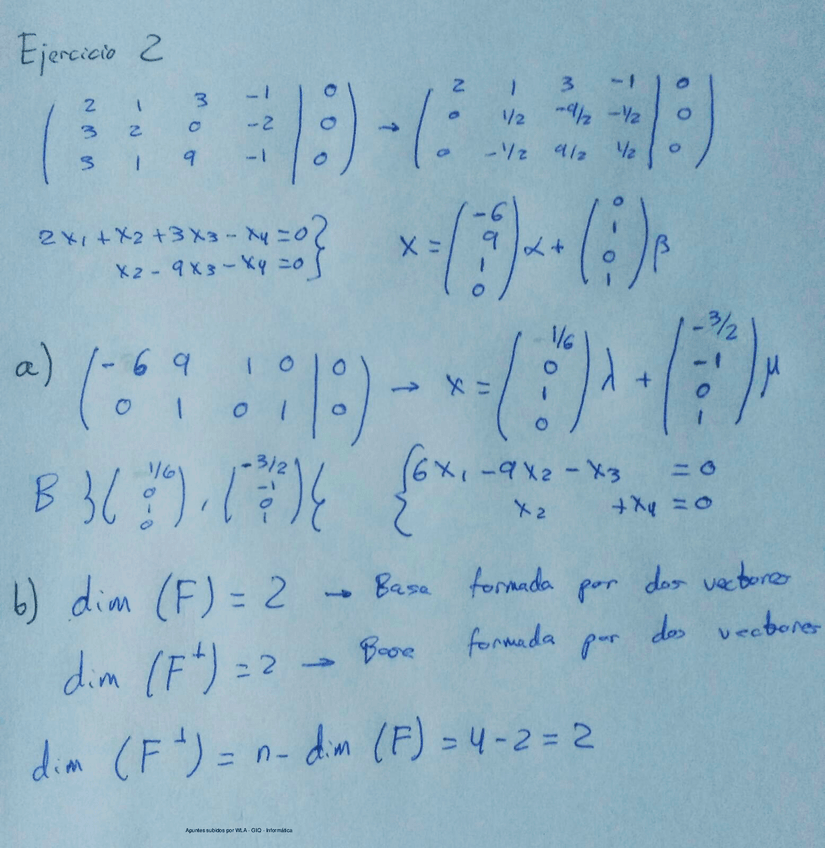 Ejercicio 2
( 2 1 3 -1 | 0 ) → ( 2 1 3 -1 | 0 )
( 3 2 0 -2 | 0 ) ( 0 1/2 -9/2 -1/2 | 0 )
( 3 1 9 -1 | 0 ) ( 0 -1/2 9/2 1/2 | 0 )
2x₁ + x₂ + 3x₃ - x₄ = 0 }
x₂ - 9x₃ - x₄ = 0 } x = (-6 9 1 0) α + (0 1 0 1) β
a) ( -6 9 1 0 | 0 ) → x = (1/6 0 1 0) λ + (-3/2 -1 0 1) μ
( 0 1 0 1 | 0 )
B } (1/6 0 1 0), (-3/2 -1 0 1) { { 6x₁ - 9x₂ - x₃ = 0
x₂ + x₄ = 0
b) dim (F) = 2 → Base formada por dos vectores
dim (F⊥) = 2 → Base formada por dos vectores
dim (F⊥) = n - dim (F) = 4 - 2 = 2
Apuntes subidos por WLA - GIQ - Informática